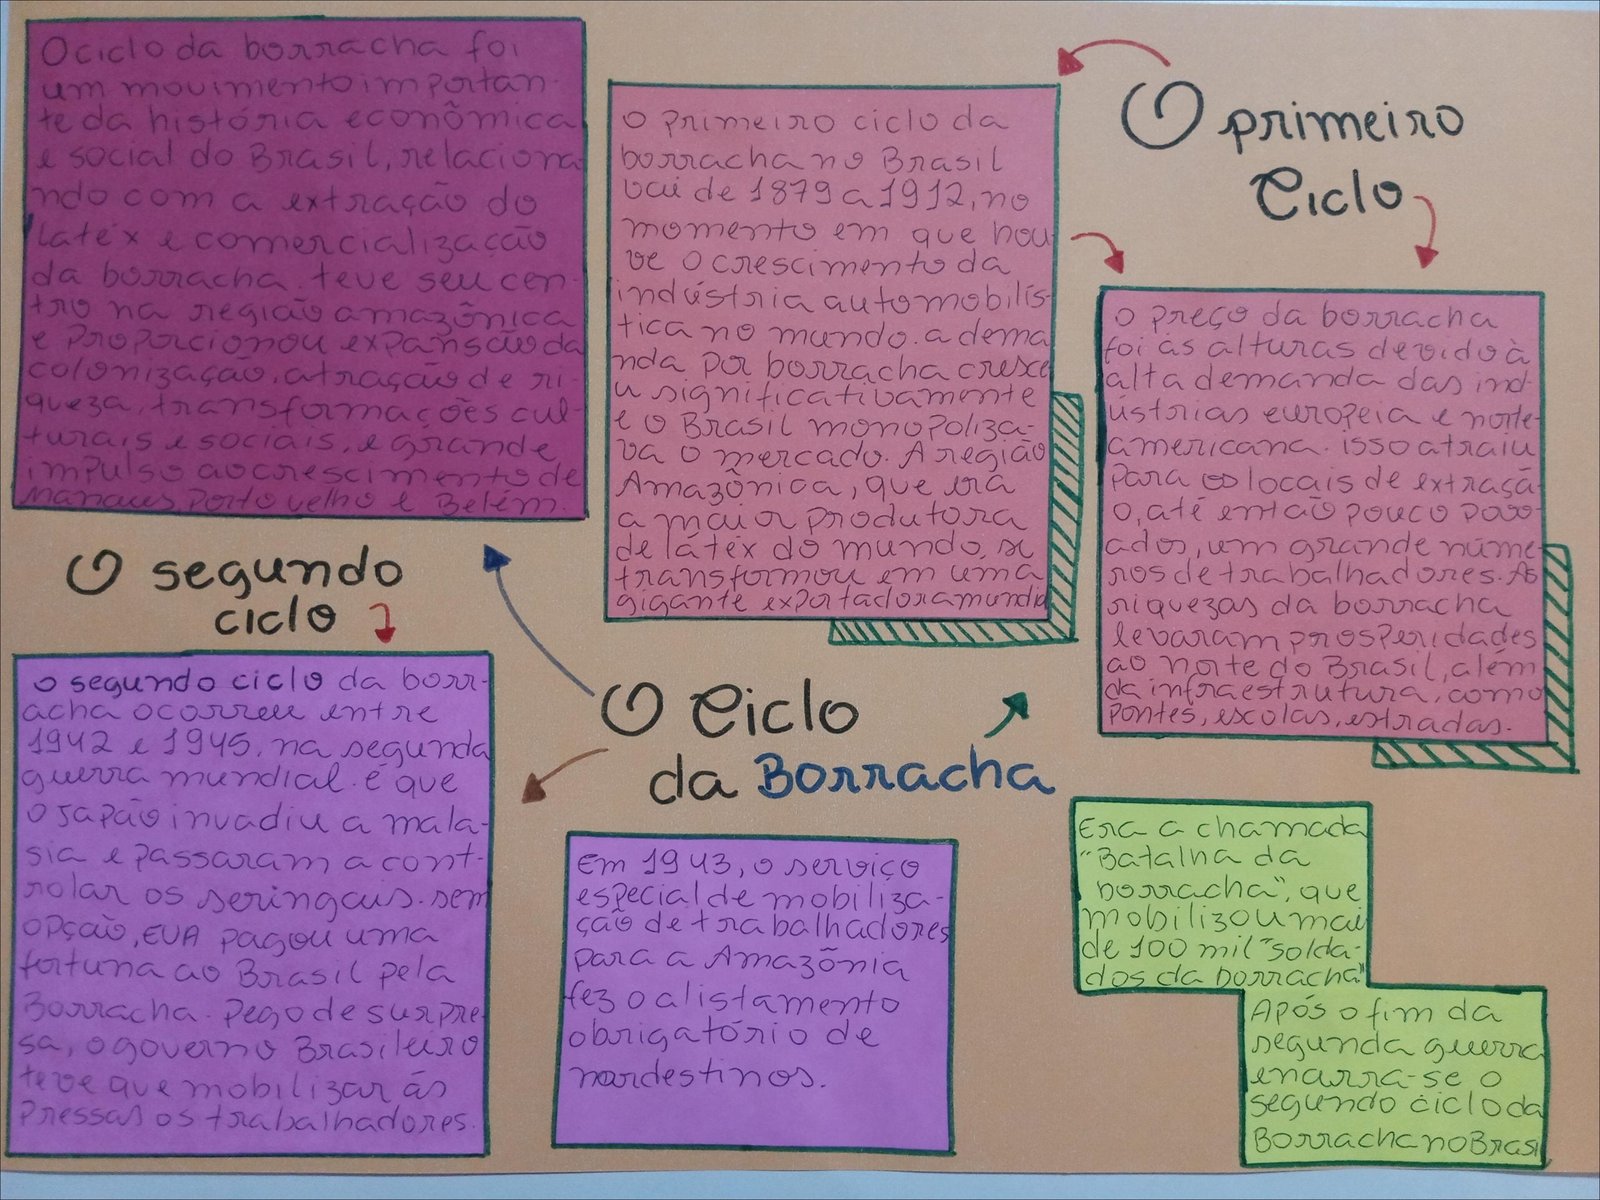 O ciclo da borracha foi
um movimento importan-
te da história econômica
e social do Brasil, relaciona
ndo com a extração do
latéx e comercialização
da borracha. teve seu cen-
tro na região amazônica
e proporcionou expansão da
colonização, atração de ri-
queza, transformações cul-
turais e sociais, e grande
impulso ao crescimento de
Manaus, Porto velho e Belém.
O primeiro
Ciclo
O primeiro ciclo da
borracha no Brasil
vai de 1879 a 1912, no
momento em que hou-
ve o crescimento da
indústria automobilís-
tica no mundo. a dema
nda por borracha cresce
u significativamente
e o Brasil monopoliza-
va o mercado. A região
Amazônica, que era
a maior produtora
de látex do mundo, se
transformou em uma
gigante exportadora mundia
O preço da borracha
foi ás alturas devido à
alta demanda das ind-
ústrias europeia e norte-
americana. isso atraiu
para os locais de extraçã-
o, até então pouco povo-
ados, um grande núme-
ros de trabalhadores. As
riquezas da borracha
levaram prosperidades
ao norte do Brasil, além
da infraestrutura, como
pontes, escolas, estradas.
O Ciclo
da Borracha
O segundo
ciclo
O segundo ciclo da borr-
acha ocorreu entre
1942 e 1945, na segunda
guerra mundial. é que
o Japão invadiu a mala-
sia e passaram a cont-
rolar os seringais. sem
opção, EUA pagou uma
fortuna ao Brasil pela
Borracha. Pego de surpre-
sa, o governo Brasileiro
teve que mobilizar ás
pressas os trabalhadores.
Em 1943, o serviço
especial de mobiliza-
ção de trabalhadores
para a Amazônia
fez o alistamento
obrigatório de
nordestinos.
Era a chamada
"Batalha da
borracha", que
mobilizou mais
de 100 mil "solda-
dos da borracha"
Após o fim da
segunda guerra
enarra-se o
segundo ciclo da
Borracha no Brasi